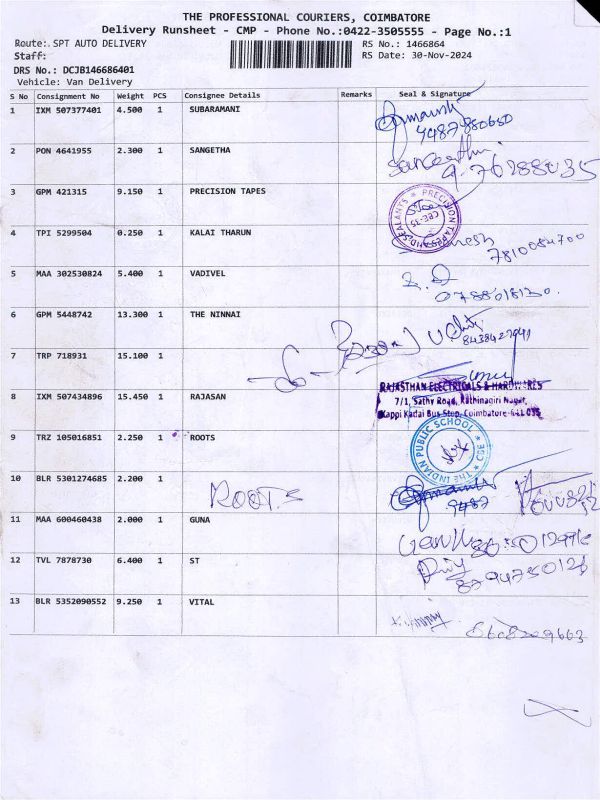 THE PROFESSIONAL COURIERS, COIMBATORE
Delivery Runsheet - CMP - Phone No.:0422-3505555 - Page No.:1
Route: SPT AUTO DELIVERY
RS No.: 1466864
Staff:
RS Date: 30-Nov-2024
DRS No.: DCJB146686401
Vehicle: Van Delivery
S No Consignment No Weight PCS Consignee Details Remarks Seal & Signature
1 IXM 507377401 4.500 1 SUBARAMANI
2 PON 4641955 2.300 1 SANGETHA
3 GPM 421315 9.150 1 PRECISION TAPES
PRECISION TAPES AND SEALANTS
CBE-15
4 TPI 5299504 0.250 1 KALAI THARUN
7810084700
5 MAA 302530824 5.400 1 VADIVEL
6 GPM 5448742 13.300 1 THE NINNAI
7 TRP 718931 15.100 1
RAJASTHAN ELECTRICALS & HARDWARES
7/1, Sathy Road, Rathinagiri Nagar,
Kappi Kadai Bus Stop, Coimbatore-641 035
8 IXM 507434896 15.450 1 RAJASAN
THE INDIAN PUBLIC SCHOOL * CBE *
9 TRZ 105016851 2.250 1 ROOTS
10 BLR 5301274685 2.200 1
ROOTS
9487
11 MAA 600460438 2.000 1 GUNA
12 TVL 7878730 6.400 1 ST
8794750126
13 BLR 5352090552 9.250 1 VITAL